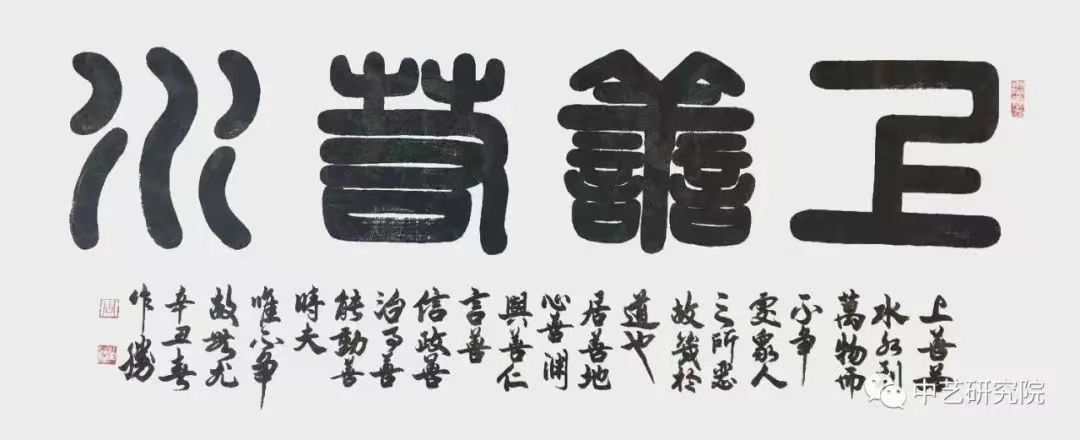 上善若水
上善若
水水利
萬物而
不争
處衆人
之所惡
故幾於
道也
居善地
心善渊
與善仁
言善
信政善
治事善
能動善
時夫
唯不争
故無尤
辛丑春
作勝
中艺研究院